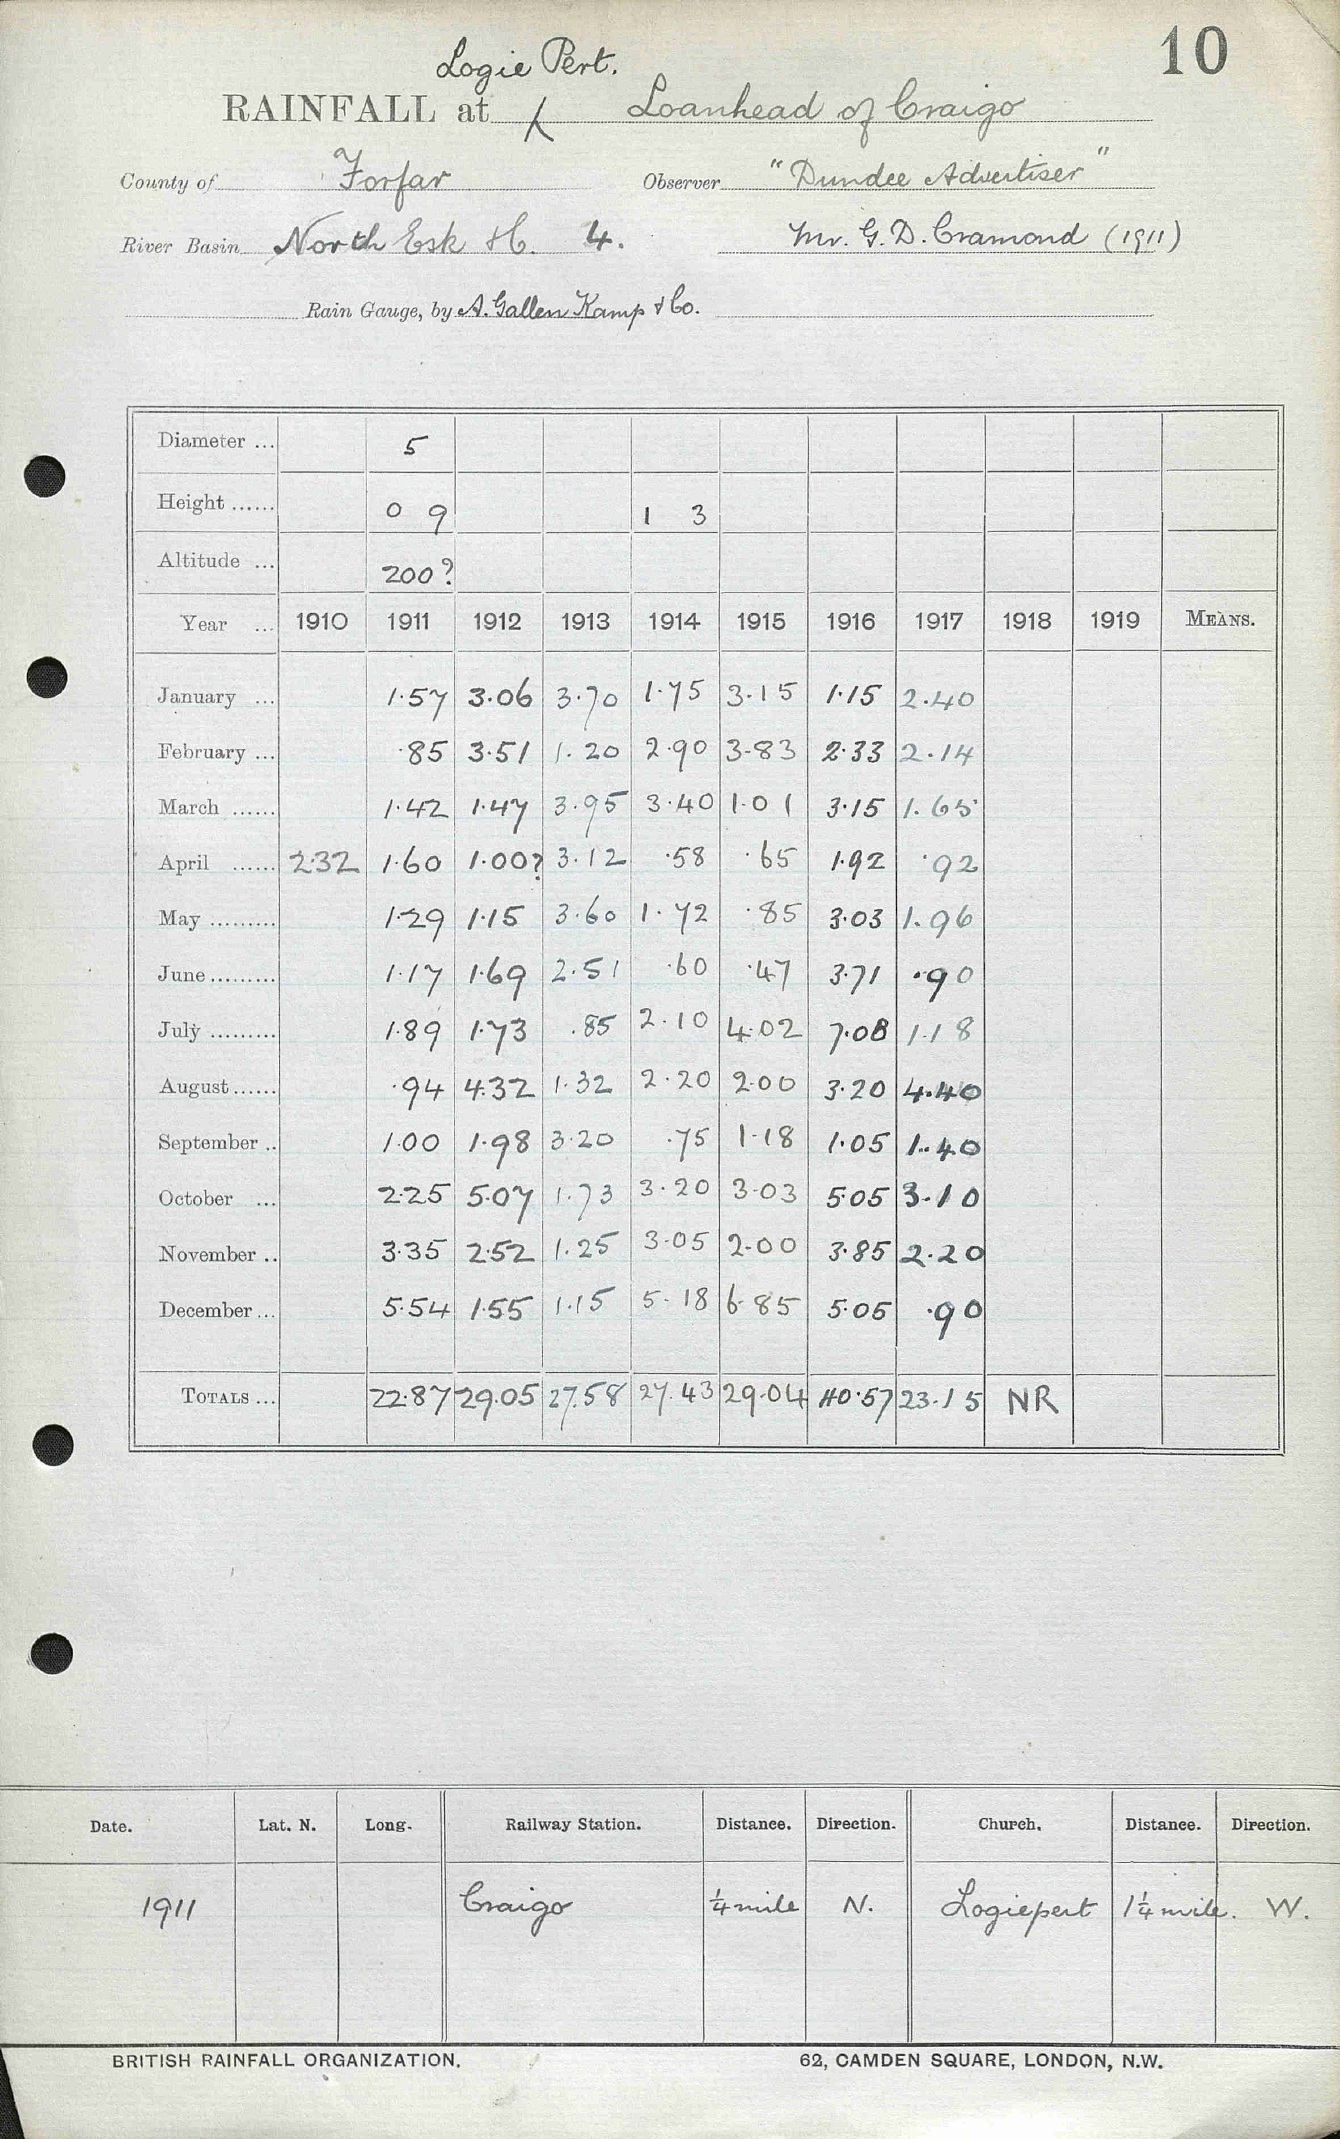 10
Logie Pert.
RAINFALL at Loanhead of Craigo
County of Forfar Observer "Dundee Advertiser"
River Basin North Esk &c. 4. Mr. G. D. Cramond (1911)
Rain Gauge, by A. Gallen Kamp & Co.
Diameter ... 5
Height ...... 0 9 1 3
Altitude ... 200?
Year ... 1910 1911 1912 1913 1914 1915 1916 1917 1918 1919 MEANS.
January ... 1.57 3.06 3.70 1.75 3.15 1.15 2.40
February ... .85 3.51 1.20 2.90 3.83 2.33 2.14
March ...... 1.42 1.47 3.95 3.40 1.01 3.15 1.65
April ...... 2.32 1.60 1.00? 3.12 .58 .65 1.92 .92
May ......... 1.29 1.15 3.60 1.72 .85 3.03 1.96
June ......... 1.17 1.69 2.51 .60 .47 3.71 .90
July ......... 1.89 1.73 .85 2.10 4.02 7.08 1.18
August ...... .94 4.32 1.32 2.20 2.00 3.20 4.40
September .. 1.00 1.98 3.20 .75 1.18 1.05 1.40
October ... 2.25 5.07 1.73 3.20 3.03 5.05 3.10
November .. 3.35 2.52 1.25 3.05 2.00 3.85 2.20
December ... 5.54 1.55 1.15 5.18 6.85 5.05 .90
TOTALS ... 22.87 29.05 27.58 27.43 29.04 40.57 23.15 NR
Date. Lat. N. Long. Railway Station. Distance. Direction. Church. Distance. Direction.
1911 Craigo 1/4 mile N. Logiepert 1 1/4 mile. W.
BRITISH RAINFALL ORGANIZATION. 62, CAMDEN SQUARE, LONDON, N.W.